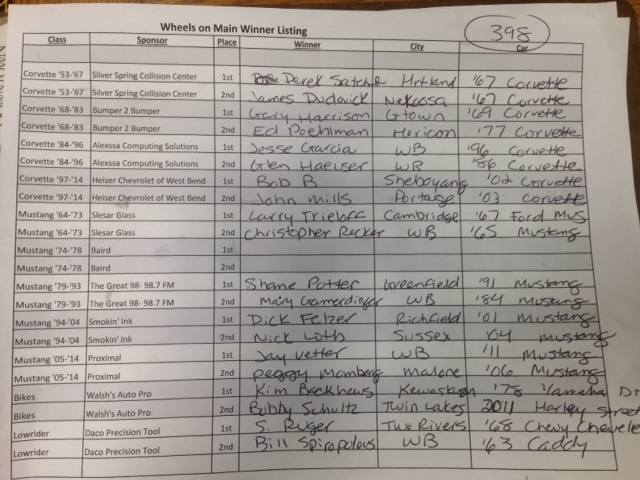 Wheels on Main Winner Listing
398
Class Sponsor Place Winner City Car
Corvette '53-'67 Silver Spring Collision Center 1st Derek Satche Hrtland '67 Corvette
Corvette '53-'67 Silver Spring Collision Center 2nd James Dudavick Nekoosa '67 Corvette
Corvette '68-'83 Bumper 2 Bumper 1st Gary Harrison Gtown '69 Corvette
Corvette '68-'83 Bumper 2 Bumper 2nd Ed Poehlman Horicon '77 Corvette
Corvette '84-'96 Alexssa Computing Solutions 1st Jesse Garcia WB '96 Corvette
Corvette '84-'96 Alexssa Computing Solutions 2nd Glen Haeuser WB '86 Corvette
Corvette '97-'14 Heiser Chevrolet of West Bend 1st Bob B Sheboygang '02 Corvette
Corvette '97-'14 Heiser Chevrolet of West Bend 2nd John Mills Portage '03 Corvette
Mustang '64-'73 Slesar Glass 1st Larry Trieloff Cambridge '67 Ford Mus
Mustang '64-'73 Slesar Glass 2nd Christopher Recker WB '65 Mustang
Mustang '74-'78 Baird 1st
Mustang '74-'78 Baird 2nd
Mustang '79-'93 The Great 98- 98.7 FM 1st Shane Potter Greenfield '91 Mustang
Mustang '79-'93 The Great 98- 98.7 FM 2nd Mary Gamerdinger WB '84 Mustang
Mustang '94-'04 Smokin' Ink 1st Dick Felzer Richfield '01 Mustang
Mustang '94-'04 Smokin' Ink 2nd Nick Loth Sussex '04 Mustang
Mustang '05-'14 Proximal 1st Jay Vetter WB '11 Mustang
Mustang '05-'14 Proximal 2nd Peggy Mamberg Malone '06 Mustang
Bikes Walsh's Auto Pro 1st Kim Backhaus Kewaskum '78 Yamaha DT
Bikes Walsh's Auto Pro 2nd Bobby Schultz Twin Lakes 2011 Harley Street
Lowrider Daco Precision Tool 1st S. Ruger Two Rivers '68 Chevy Chevelle
Lowrider Daco Precision Tool 2nd Bill Spiropolous WB '63 Caddy